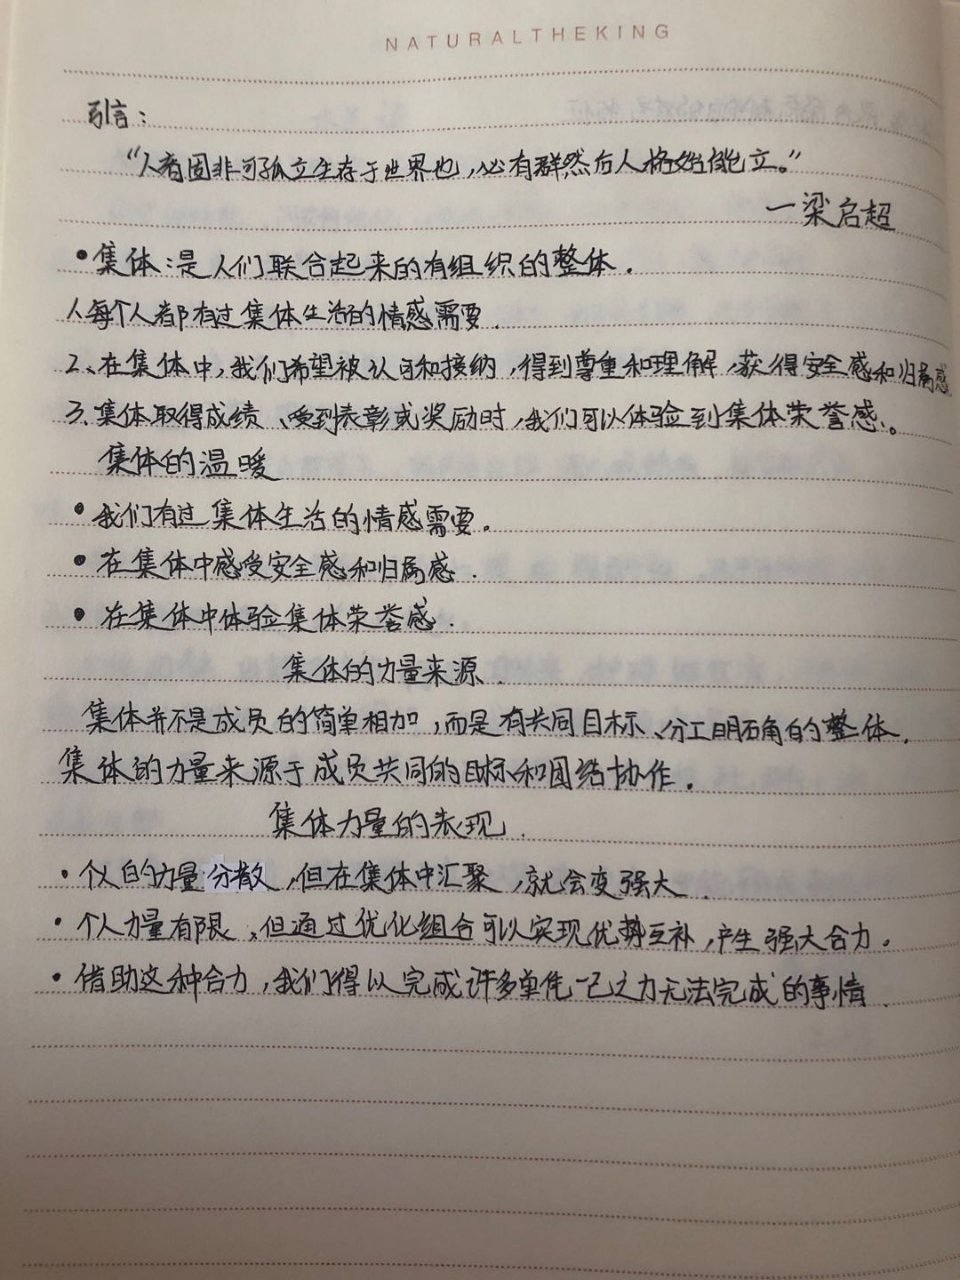 NATURALTHEKING
引言：
“人者固非可孤立生存于世界也，必有群然后人格始能立。”
—梁启超
•集体：是人们联合起来的有组织的整体.
1、每个人都有过集体生活的情感需要.
2、在集体中，我们希望被认可和接纳，得到尊重和理解，获得安全感和归属感
3、集体取得成绩、受到表彰或奖励时，我们可以体验到集体荣誉感。
集体的温暖
•我们有过集体生活的情感需要。
•在集体中感受安全感和归属感.
•在集体中体验集体荣誉感.
集体的力量来源.
集体并不是成员的简单相加，而是有共同目标、分工明确的整体.
集体的力量来源于成员共同的目标和团结协作.
集体力量的表现.
•个人的力量分散，但在集体中汇聚，就会变强大.
•个人力量有限，但通过优化组合可以实现优势互补，产生强大合力.
•借助这种合力，我们得以完成许多单凭一己之力无法完成的事情.